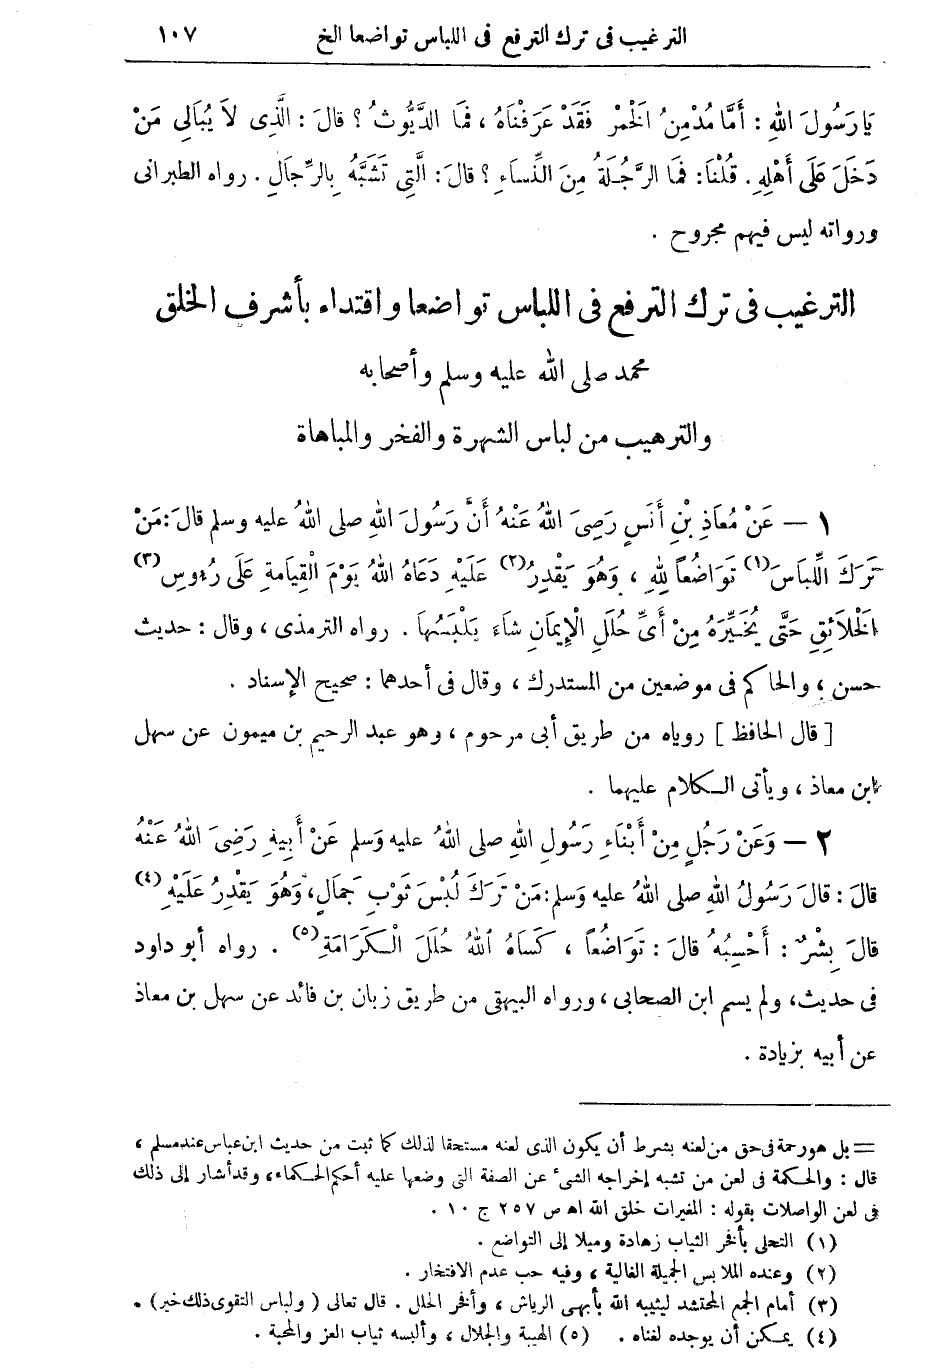 الترغيب فى ترك الترفع فى اللباس تواضعا الخ ١٠٧
يَا رَسُولَ اللهِ : أَمَّا مُدْمِنُ الْخَمْرِ فَقَدْ عَرَفْنَاهُ ، فَمَا الدَّيُّوثُ ؟ قالَ : الَّذِى لاَ يُبَالِى مَنْ
دَخَلَ عَلَى أَهْلِهِ . قُلْنَا : فَمَا الرَّجُلَةُ مِنَ النِّسَاءِ ؟ قالَ : الَّتِى تَشَبَّهُ بِالرِّجَالِ . رواه الطبرانى
ورواته ليس فيهم مجروح .
الترغيب فى ترك الترفع فى اللباس تواضعا واقتداء بأشرف الخلق
محمد صلى الله عليه وسلم وأصحابه
والترهيب من لباس الشهرة والفخر والمباهاة
١ — عَنْ مُعَاذِ بْنِ أَنَسٍ رَضِىَ اللهُ عَنْهُ أَنَّ رَسُولَ اللهِ صلى اللهُ عليه وسلم قالَ : مَنْ
تَرَكَ اللِّبَاسَ (١) تَوَاضُعاً لِلهِ ، وَهُوَ يَقْدِرُ (٢) عَلَيْهِ دَعَاهُ اللهُ يَوْمَ الْقِيَامَةِ عَلَى رُءُوسِ (٣)
الْخَلَائِقِ حَتَّى يُخَيِّرَهُ مِنْ أَىِّ حُلَلِ الْإِيمَانِ شَاءَ يَلْبَسُهَا . رواه الترمذى ، وقال : حديث
حسن ، والحاكم فى موضعين من المستدرك ، وقال فى أحدهما : صحيح الإسناد .
[ قال الحافظ ] روياه من طريق أبى مرحوم ، وهو عبد الرحيم بن ميمون عن سهل
ابن معاذ ، ويأتى الكلام عليهما .
٢ — وَعَنْ رَجُلٍ مِنْ أَبْنَاءِ رَسُولِ اللهِ صلى اللهُ عليه وَسلم عَنْ أَبِيهِ رَضِىَ اللهُ عَنْهُ
قالَ : قالَ رَسُولُ اللهِ صلى اللهُ عليه وَسلم : مَنْ تَرَكَ لُبْسَ ثَوْبِ جَمَالٍ ، وَهُوَ يَقْدِرُ عَلَيْهِ (٤)
قالَ بِشْرٌ : أَحْسِبُهُ قالَ : تَوَاضُعاً ، كَسَاهُ اللهُ حُلَلَ الْكَرَامَةِ (٥) . رواه أبو داود
فى حديث ، ولم يسم ابن الصحابى ، ورواه البيهقى من طريق زبان بن فائد عن سهل بن معاذ
عن أبيه بزيادة .
= بل هو رحمة فى حق من لعنه بشرط أن يكون الذى لعنه مستحقا لذلك كما ثبت من حديث ابن عباس عند مسلم ،
قال : والحكمة فى لعن من تشبه إخراجه الشىء عن الصفة التى وضعها عليه أحكم الحكماء ، وقد أشار إلى ذلك
فى لعن الواصلات بقوله : المغيرات خلق الله اه ص ٢٥٧ ج ١٠ .
(١) التحلى بأفخر الثياب زهادة وميلا إلى التواضع .
(٢) وعنده الملابس الجميلة الغالية ، وفيه حب عدم الافتخار .
(٣) أمام الجمع المحتشد ليثيبه الله بأبهى الرياش ، وأفخر الحلل . قال تعالى ( ولباس التقوى ذلك خير ) .
(٤) يمكن أن يوجده لغناه . (٥) الهيبة والجلال ، وألبسه ثياب العز والمحبة .